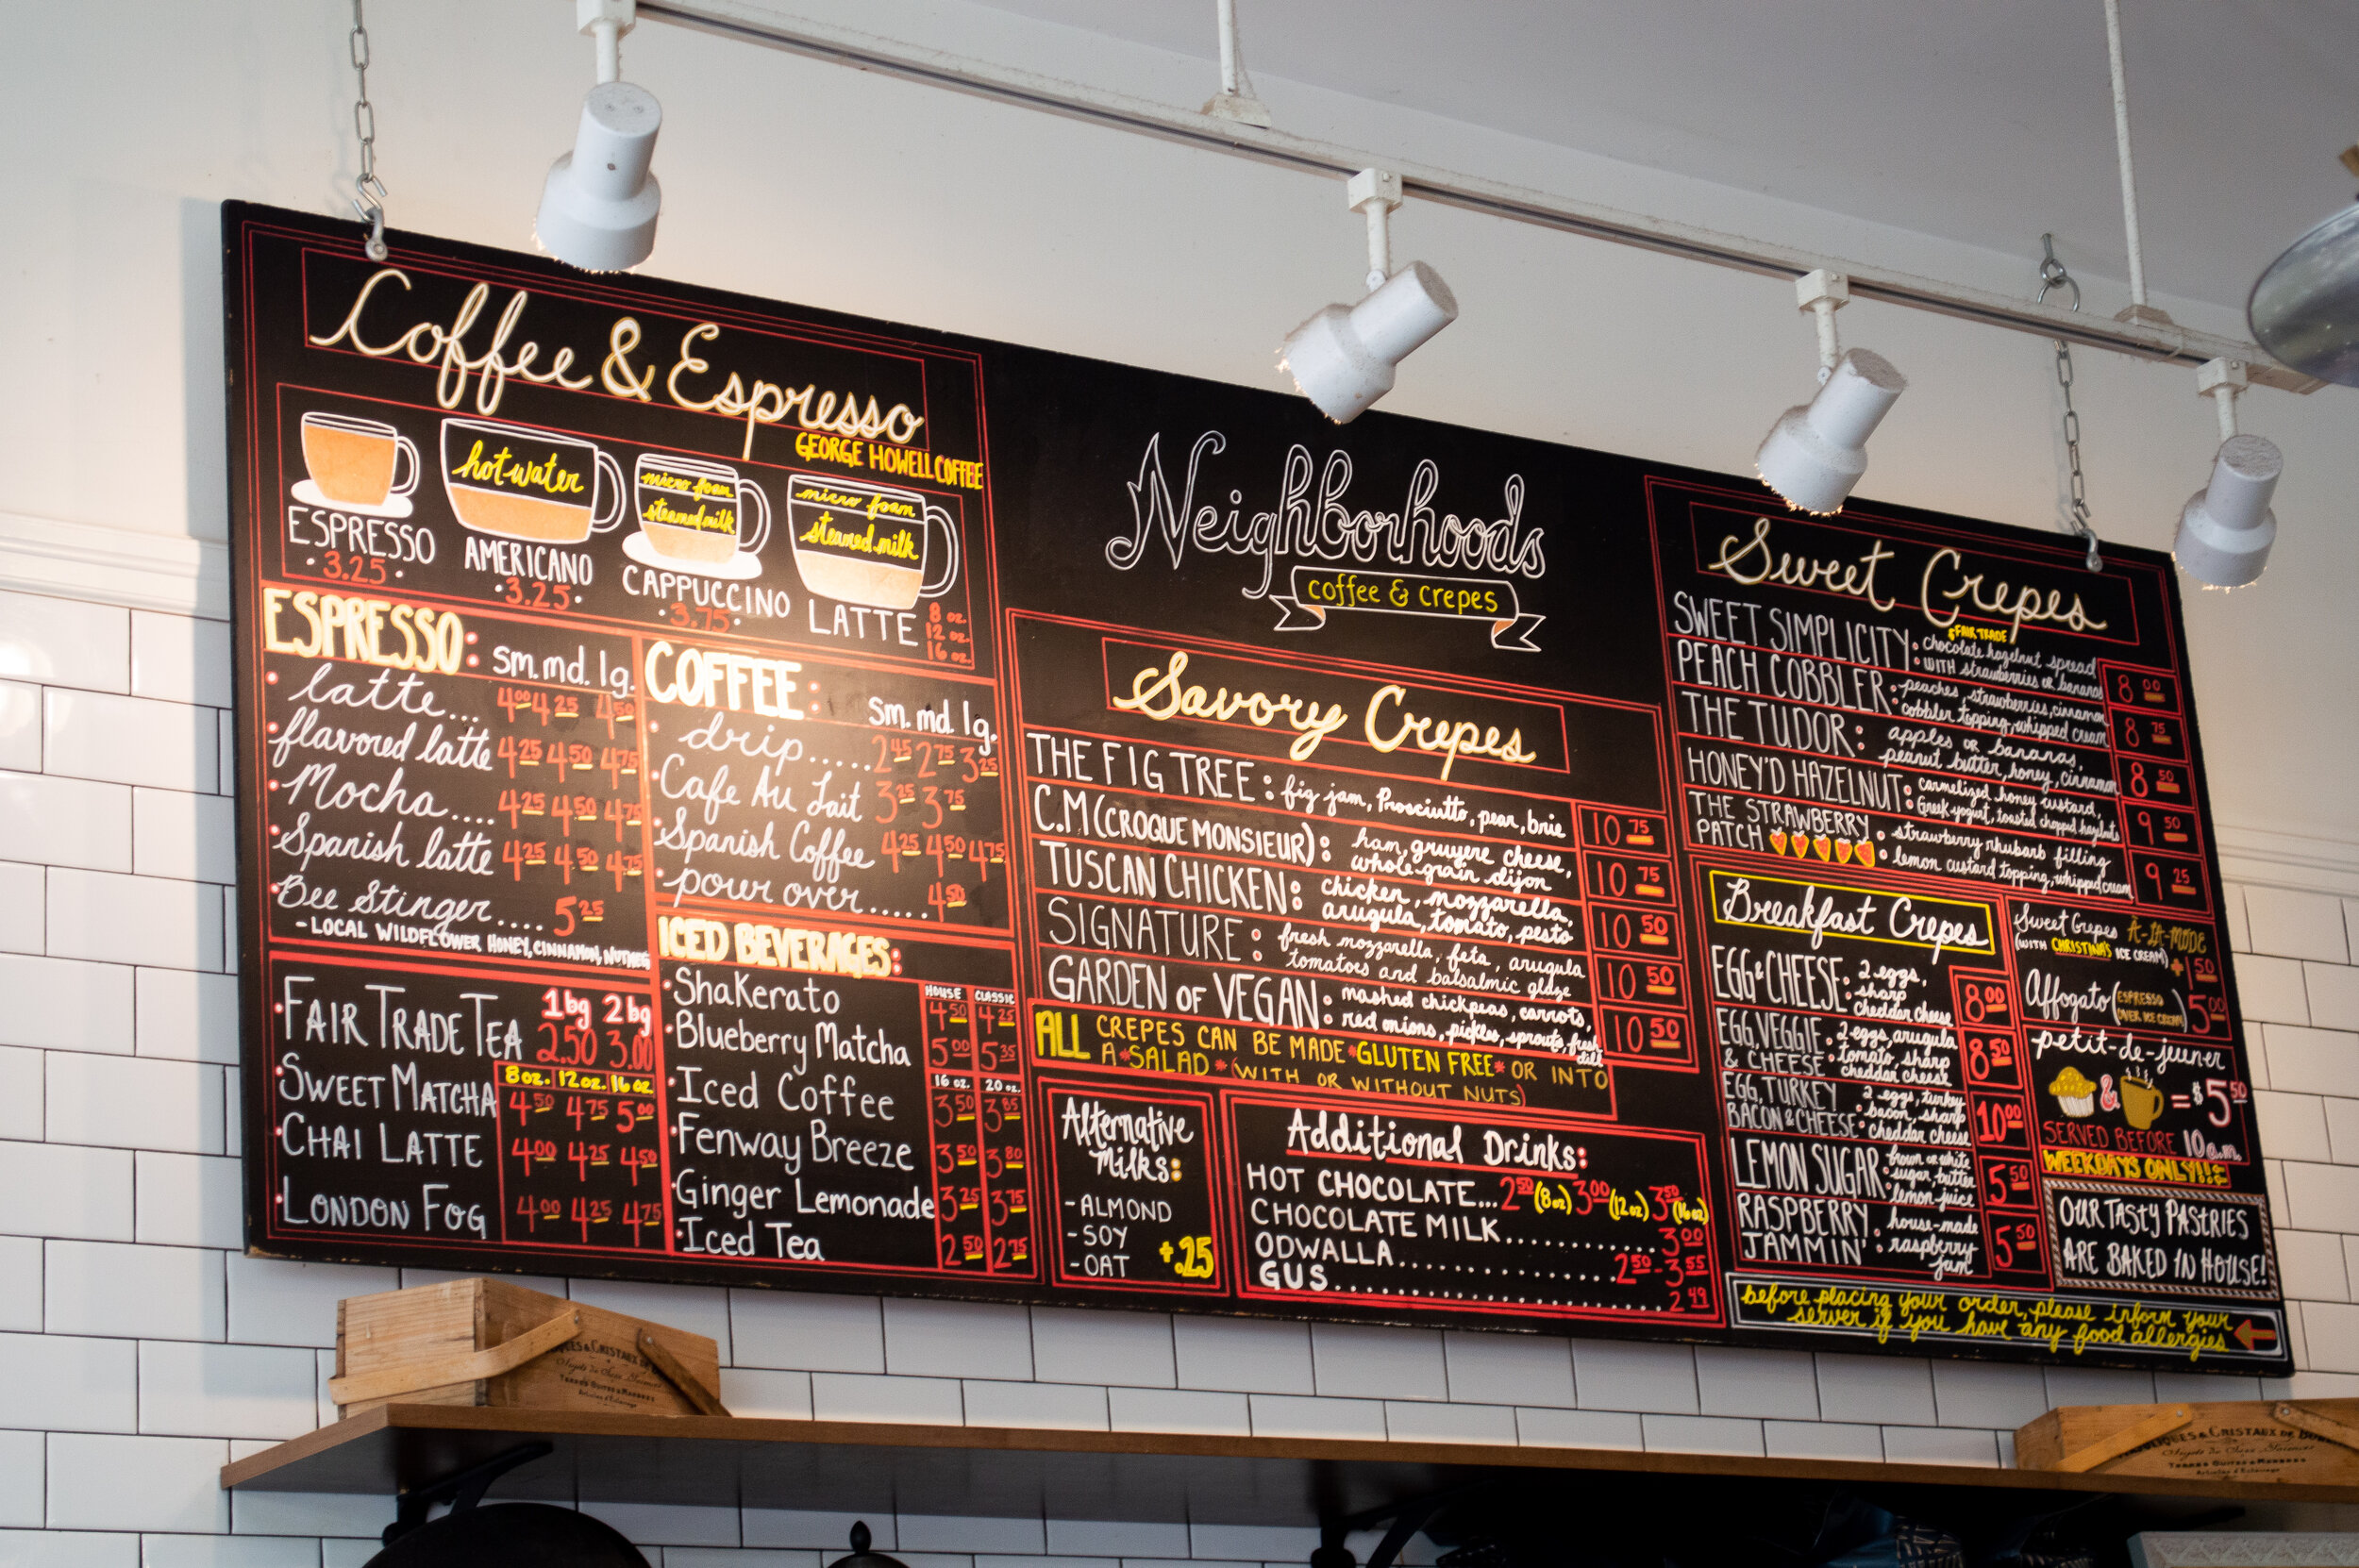 Coffee & Espresso
GEORGE HOWELL COFFEE
hot water
micro foam
steamed milk
micro foam
steamed milk
ESPRESSO
3.25
AMERICANO
3.25
CAPPUCCINO
3.75
LATTE
8 oz.
12 oz.
16 oz.
ESPRESSO: sm. md. lg.
latte... 4.00 4.25 4.50
flavored latte 4.25 4.50 4.75
Mocha.... 4.25 4.50 4.75
Spanish latte 4.25 4.50 4.75
Bee Stinger.... 5.25
- LOCAL WILDFLOWER HONEY, CINNAMON, NUTMEG
1bg 2bg
FAIR TRADE TEA 2.50 3.00
8 oz. 12 oz. 16 oz.
SWEET MATCHA 4.50 4.75 5.00
CHAI LATTE 4.00 4.25 4.50
LONDON FOG 4.00 4.25 4.75
COFFEE:
sm. md. lg.
drip..... 2.45 2.75 3.25
Cafe Au Lait 3.25 3.75
Spanish Coffee 4.25 4.50 4.75
pour over..... 4.50
ICED BEVERAGES:
HOUSE CLASSIC
Shakerato 4.50 4.25
Blueberry Matcha 5.00 5.35
16 oz. 20 oz.
Iced Coffee 3.50 3.85
Fenway Breeze 3.50 3.80
Ginger Lemonade 3.25 3.75
Iced Tea 2.50 2.75
Neighborhoods
coffee & crepes
Savory Crepes
THE FIG TREE: fig jam, Prosciutto, pear, brie 10.75
C.M (CROQUE MONSIEUR): ham, gruyere cheese,
whole-grain dijon 10.75
TUSCAN CHICKEN: chicken, mozzarella,
arugula, tomato, pesto 10.50
SIGNATURE: fresh mozzarella, feta, arugula
tomatoes and balsalmic glaze 10.50
GARDEN OF VEGAN: mashed chickpeas, carrots,
red onions, pickles, sprouts, fresh
dill 10.50
ALL CREPES CAN BE MADE *GLUTEN FREE* OR INTO
A *SALAD* (WITH OR WITHOUT NUTS)
Alternative
Milks:
- ALMOND
- SOY
- OAT +.25
Additional Drinks:
HOT CHOCOLATE... 2.50 (8oz) 3.00 (12oz) 3.50 (16oz)
CHOCOLATE MILK............ 3.00
ODWALLA................ 2.50-3.55
GUS........................ 2.49
Sweet Crepes
FAIR TRADE
SWEET SIMPLICITY: chocolate hazelnut spread
WITH strawberries or bananas 8.00
PEACH COBBLER: peaches, strawberries, cinnamon
cobbler topping, whipped cream 8.75
THE TUDOR: apples or bananas,
peanut butter, honey, cinnamon 8.50
HONEY'D HAZELNUT: carmelized honey custard,
Greek yogurt, toasted chopped hazelnuts 9.50
THE STRAWBERRY
PATCH: strawberry rhubarb filling
lemon custard topping, whipped cream 9.25
Breakfast Crepes
EGG & CHEESE: 2 eggs,
sharp
cheddar cheese 8.00
EGG, VEGGIE
& CHEESE: 2 eggs, arugula
tomato, sharp
cheddar cheese 8.50
EGG, TURKEY
BACON & CHEESE: 2 eggs, turkey
bacon, sharp
cheddar cheese 10.00
LEMON SUGAR: brown or white
sugar, butter
lemon juice 5.50
RASPBERRY
JAMMIN': house-made
raspberry
jam 5.50
Sweet Crepes À-LA-MODE
(WITH CHRISTINA'S ICE CREAM) +1.50
Affogato (ESPRESSO
OVER ICE CREAM) 5.00
petit-de-jeuner
& = $5.50
SERVED BEFORE 10 a.m.
WEEKDAYS ONLY!!
OUR TASTY PASTRIES
ARE BAKED IN HOUSE!
before placing your order, please inform your
server if you have any food allergies